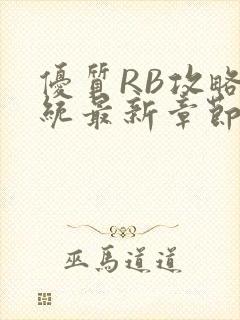 優質RB攻略
統最新章節
巫馬道道